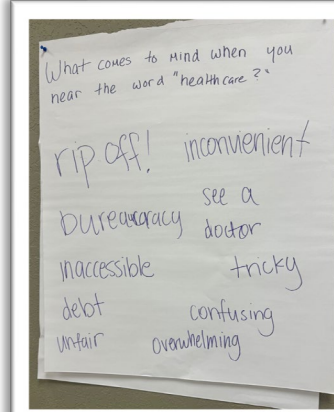 What comes to mind when you
hear the word "healthcare?"
rip off! inconvienient
see a
bureauracracy doctor
inaccessible tricky
debt confusing
unfair overwhelming